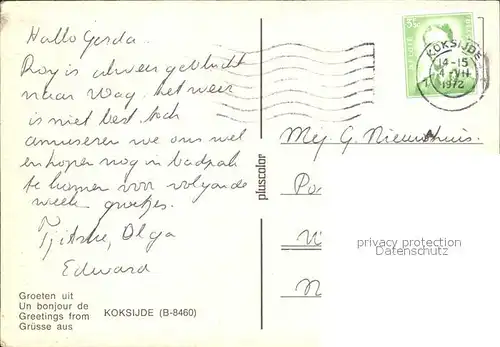 Hallo Gerda.
Roy is alweer gevlucht
naar Wag. het weer
is niet best toch
amuseren we ons wel
en hopen nog in badpak
te komen voor volgende
week groetjes.
Tjitske, Olga
Edward
Groeten uit
Un bonjour de
Greetings from
Grüsse aus
KOKSIJDE (B-8460)
pluscolor
KOKSIJDE
14-15
4-VII
1972
Mej G. Nieuwhuis.
privacy protection
Datenschutz